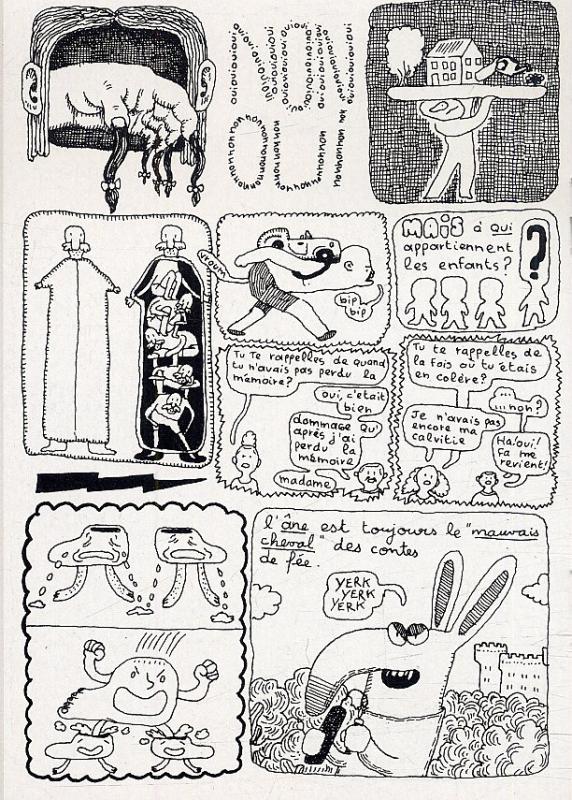 VROUM
bip
bip
MAIS à qui
appartiennent
les enfants?
?
Tu te rappelles de quand
tu n'avais pas perdu la
mémoire?
oui, c'était
bien
dommage qu'
après j'ai
perdu la
mémoire
madame
Tu te rappelles de
la fois où tu étais
en colère?
...non?
Je n'avais pas
encore ma
calvitie
Ha, oui!
Ça me
revient!
l'âne est toujours le "mauvais
cheval" des contes
de fée.
YERK
YERK
YERK